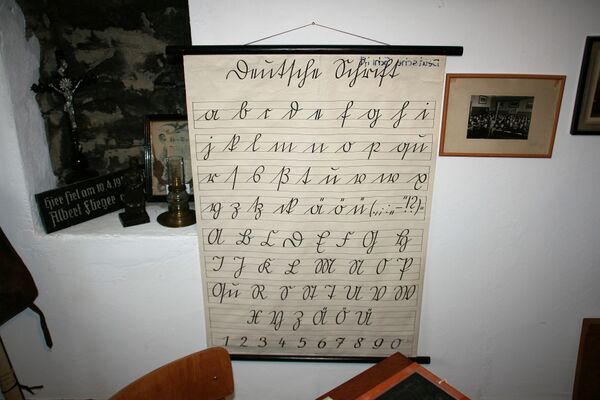 Deutsche Schrift
Deutsche Schrift
a b c d e f g h i
j k l m n o p qu
r s ß t u v w x
y z tz ck ä ö ü (.,:;–"!?)"
A B C D E F G H
I J K L M N O P
Qu R S St T U V W
X Y Z Ä Ö Ü
1 2 3 4 5 6 7 8 9 0
Hier fiel am 10.4.19
Albert Flieger